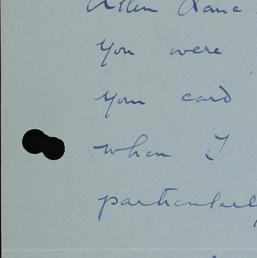 Allen Lane
you were
your card
when I
particularly